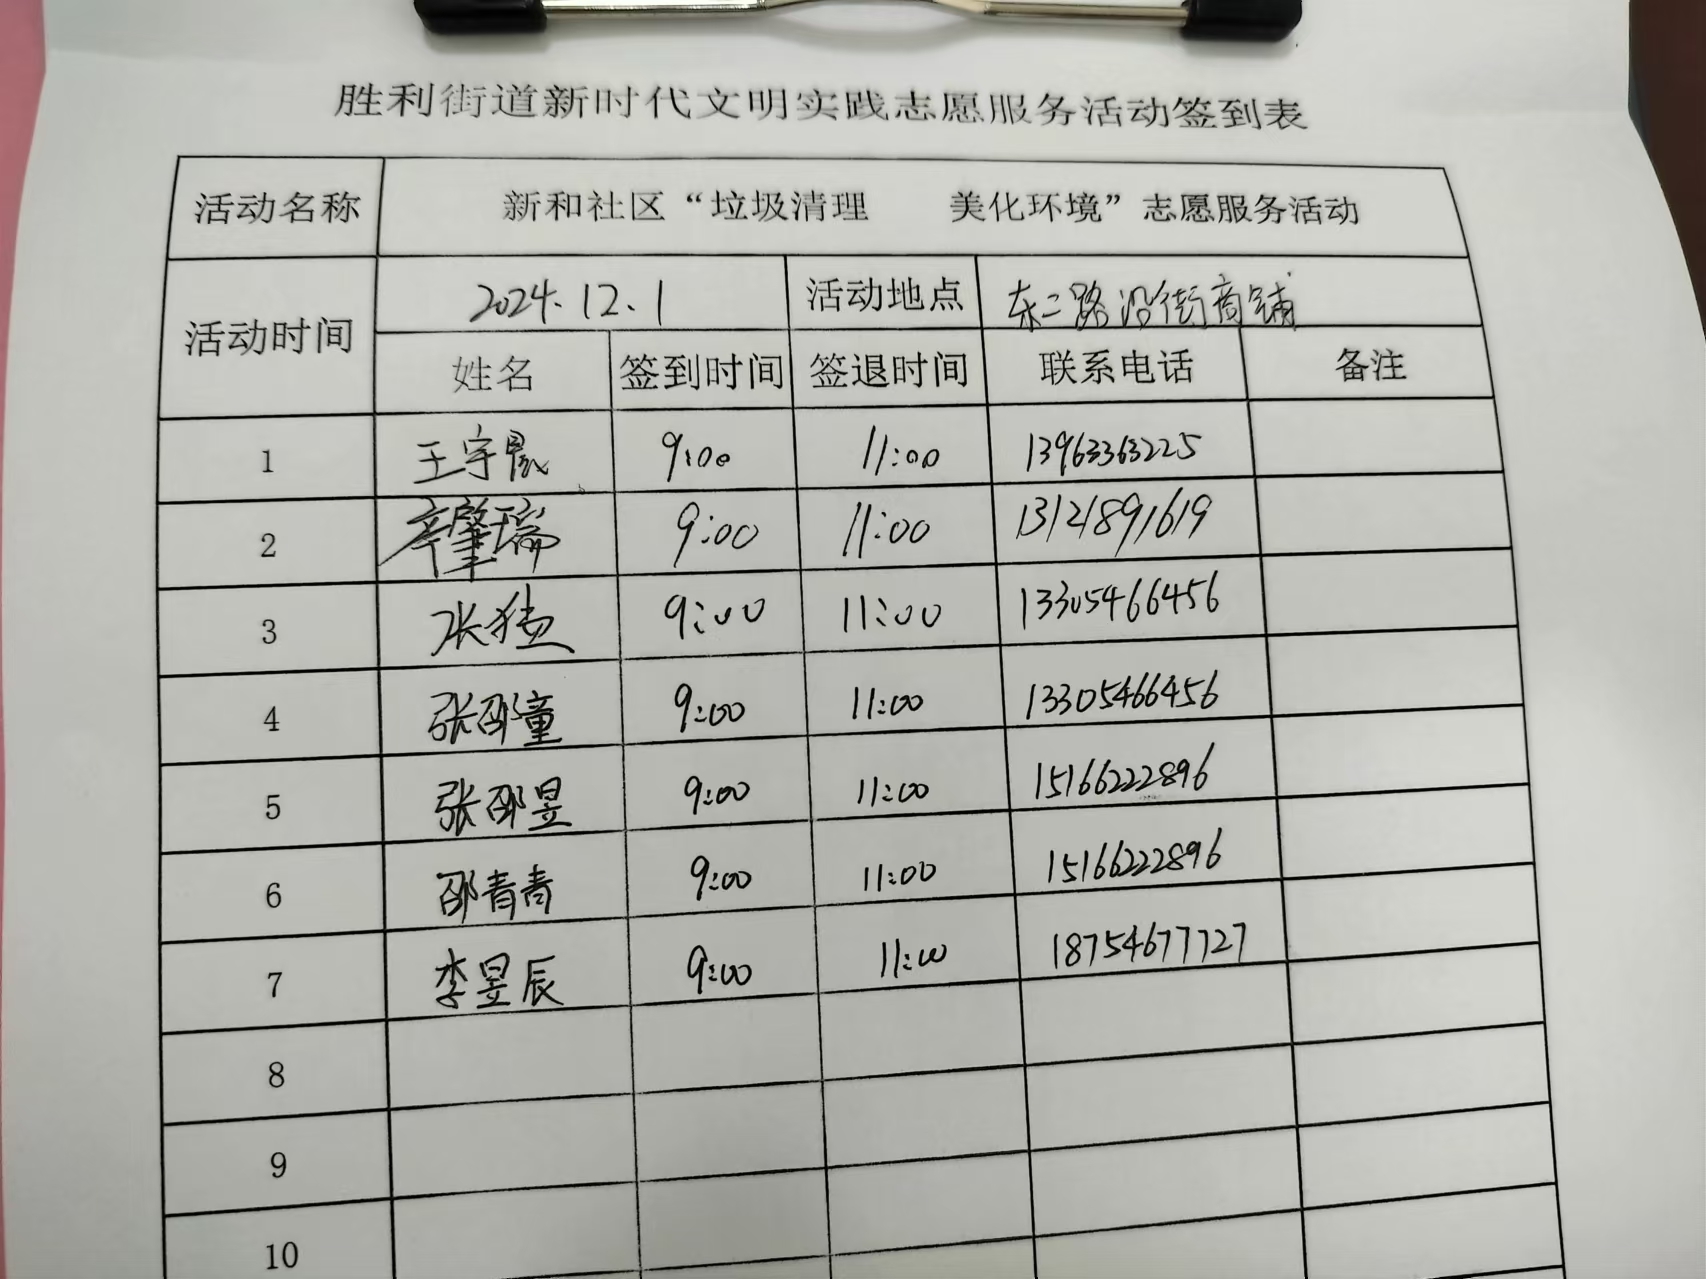 胜利街道新时代文明实践志愿服务活动签到表
活动名称 新和社区“垃圾清理 美化环境”志愿服务活动
活动时间 2024.12.1 活动地点 东二路沿街商铺
姓名 签到时间 签退时间 联系电话 备注
1 王宇晟 9:00 11:00 13963363225
2 辛肇瑞 9:00 11:00 13121891619
3 张猛 9:00 11:00 13305466456
4 张邵童 9:00 11:00 13305466456
5 张邵昱 9:00 11:00 15166222896
6 邵青青 9:00 11:00 15166222896
7 李昱辰 9:00 11:00 18754677727
8
9
10